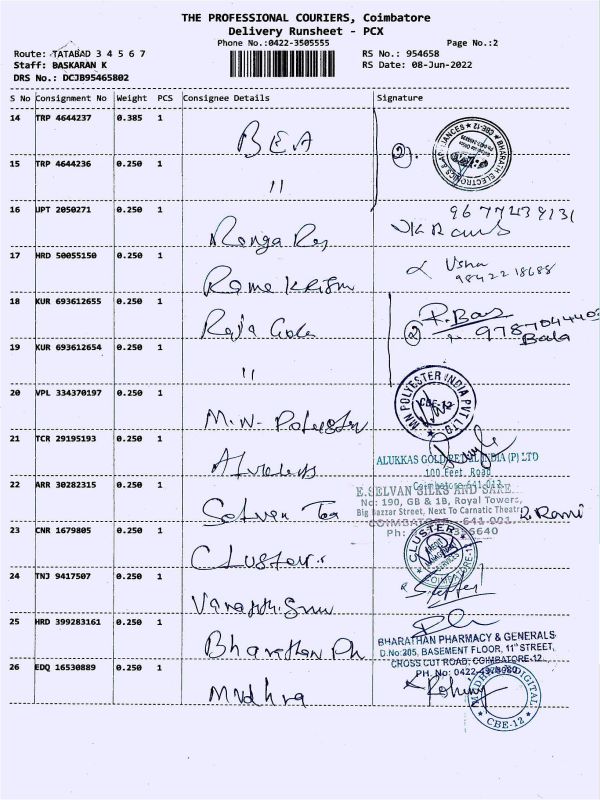 THE PROFESSIONAL COURIERS, Coimbatore
Delivery Runsheet - PCX
Phone No.:0422-3505555 Page No.:2
Route: TATABAD 3 4 5 6 7 RS No.: 954658
Staff: BASKARAN K RS Date: 08-Jun-2022
DRS No.: DCJB95465802
S No Consignment No Weight PCS Consignee Details Signature
14 TRP 4644237 0.385 1
BEA
2
BHARATH ELECTRONICS & APPLIANCES CBE-12
15 TRP 4644236 0.250 1
"
16 UPT 2050271 0.250 1
9677239131
Ranga Raj
17 HRD 50055150 0.250 1
Usha
9842218688
Rama Krism
18 KUR 693612655 0.250 1
Raja Gola
2
R. Bas
9787044403
Bala
19 KUR 693612654 0.250 1
"
20 VPL 334370197 0.250 1
M.N. Polyester
MN POLYESTER INDIA PVT LTD
CBE-12
21 TCR 29195193 0.250 1
ALUKKAS GOLD RETAIL INDIA (P) LTD
100 Feet Road
Coimbatore-641 012
22 ARR 30282315 0.250 1
E.SELVAN SILKS AND SARE
No: 190, GB & 1B, Royal Towers,
Big Bazzar Street, Next To Carnatic Theatre
COIMBATORE - 641 001
Selvan Tex
R. Rami
23 CNR 1679805 0.250 1
Cluster
CLUSTER
CREDIT MANAGEMENT SERVICES
COIMBATORE
24 TNJ 9417507 0.250 1
25 HRD 399283161 0.250 1
Bharathan Ph
BHARATHAN PHARMACY & GENERALS
D.No:205, BASEMENT FLOOR, 11th STREET,
CROSS CUT ROAD, COIMBATORE-12.
26 EDQ 16530889 0.250 1
Mudhra
Rohiny
MUDHRA DIGITAL
CBE-12